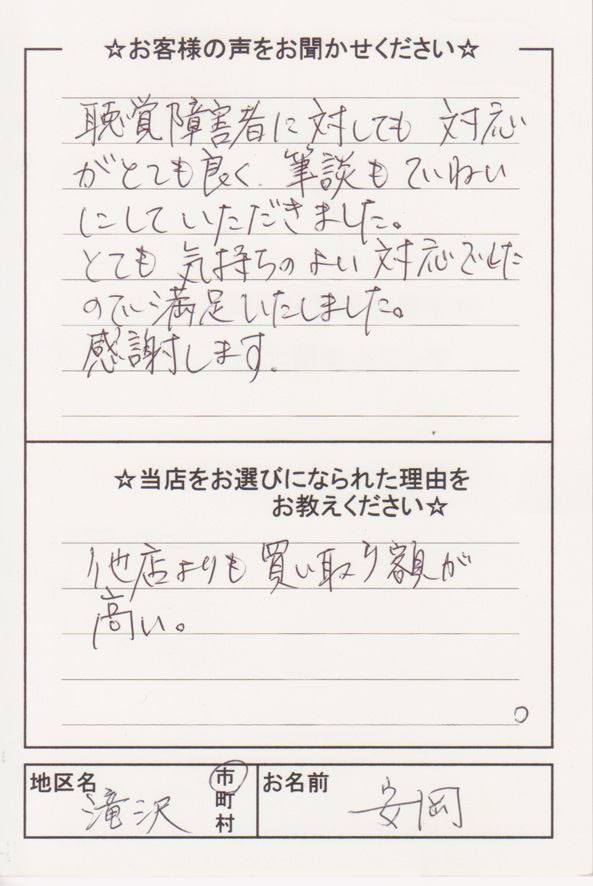 ☆お客様の声をお聞かせください☆
聴覚障害者に対しても 対応
がとても良く、筆談もていねい
にしていただきました。
とても 気持ちのよい 対応でした
ので、満足いたしました。
感謝します。
☆当店をお選びになられた理由を
お教えください☆
他店よりも 買い取り額が
高い。
地区名
滝沢
市
町
村
お名前
安岡